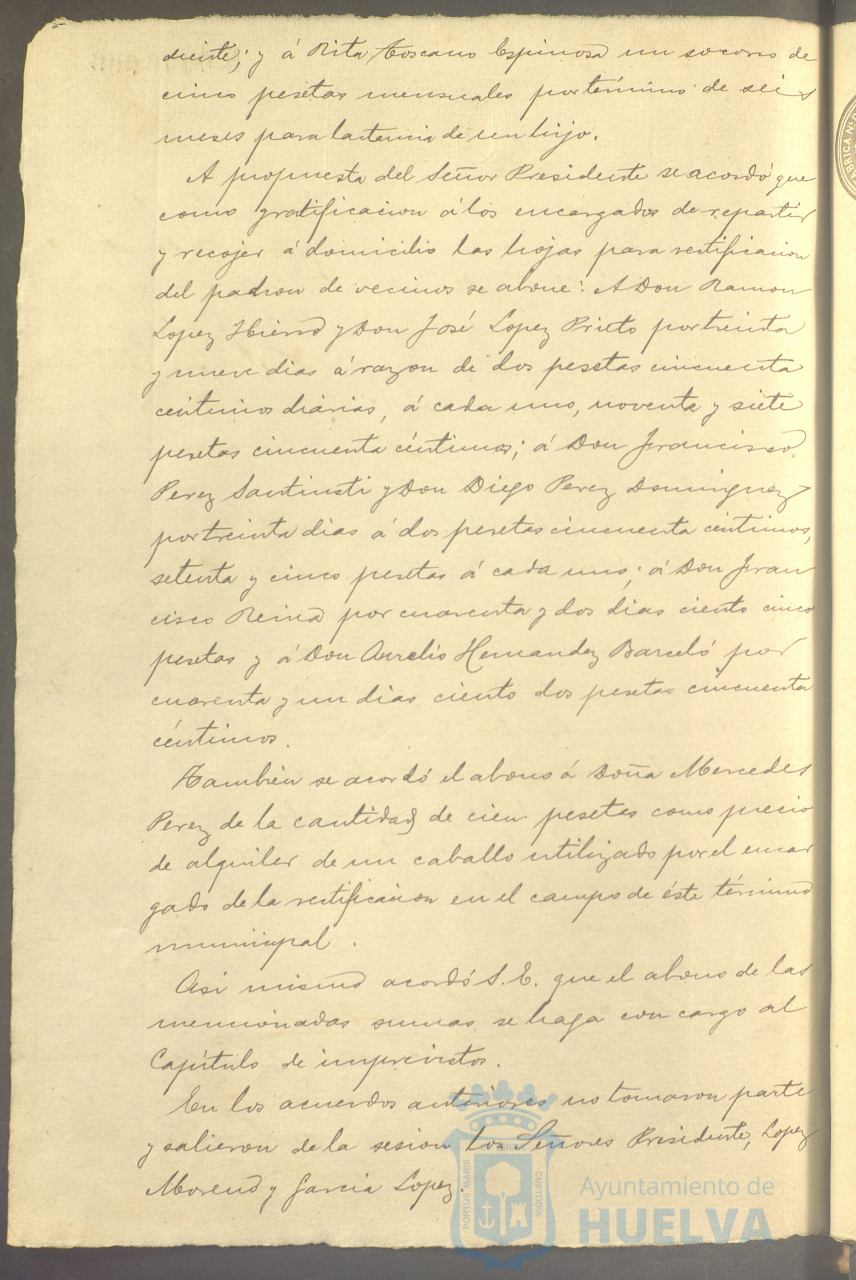 diente; y á Rita Toscano Espinosa un socorro de
cinco pesetas mensuales por término de seis
meses para lactancia de un hijo.
A propuesta del Señor Presidente se acordó que
como gratificacion á los encargados de repartir
y recojer á domicilio las hojas para rectificacion
del padron de vecinos se abone: A Don Ramon
Lopez Hierro y Don José Lopez Prieto por treinta
y nueve dias á razon de dos pesetas cincuenta
céntimos diarias, á cada uno, noventa y siete
pesetas cincuenta céntimos; á Don Francisco
Perez Santinsti y Don Diego Perez Dominguez
por treinta dias á dos pesetas cincuenta centimos,
setenta y cinco pesetas á cada uno; á Don Fran
cisco Reina por cuarenta y dos dias ciento cinco
pesetas y á Don Aurelio Hernandez Barceló por
cuarenta y un dias ciento dos pesetas cincuenta
céntimos.
Tambien se acordó el abono á Doña Mercedes
Perez de la cantidad de cien pesetas como precio
de alquiler de un caballo utilizado por el encar
gado de la rectificacion en el campo de éste término
municipal.
Asi mismo acordó S. E. que el abono de las
mencionadas sumas se haga con cargo al
Capítulo de imprevistos.
En los acuerdos anteriores no tomaron parte
y salieron de la sesion los Señores Presidente, Lopez
Moreno y Garcia Lopez.
PORTUS MARIS
CUSTODIA
Ayuntamiento de
HUELVA